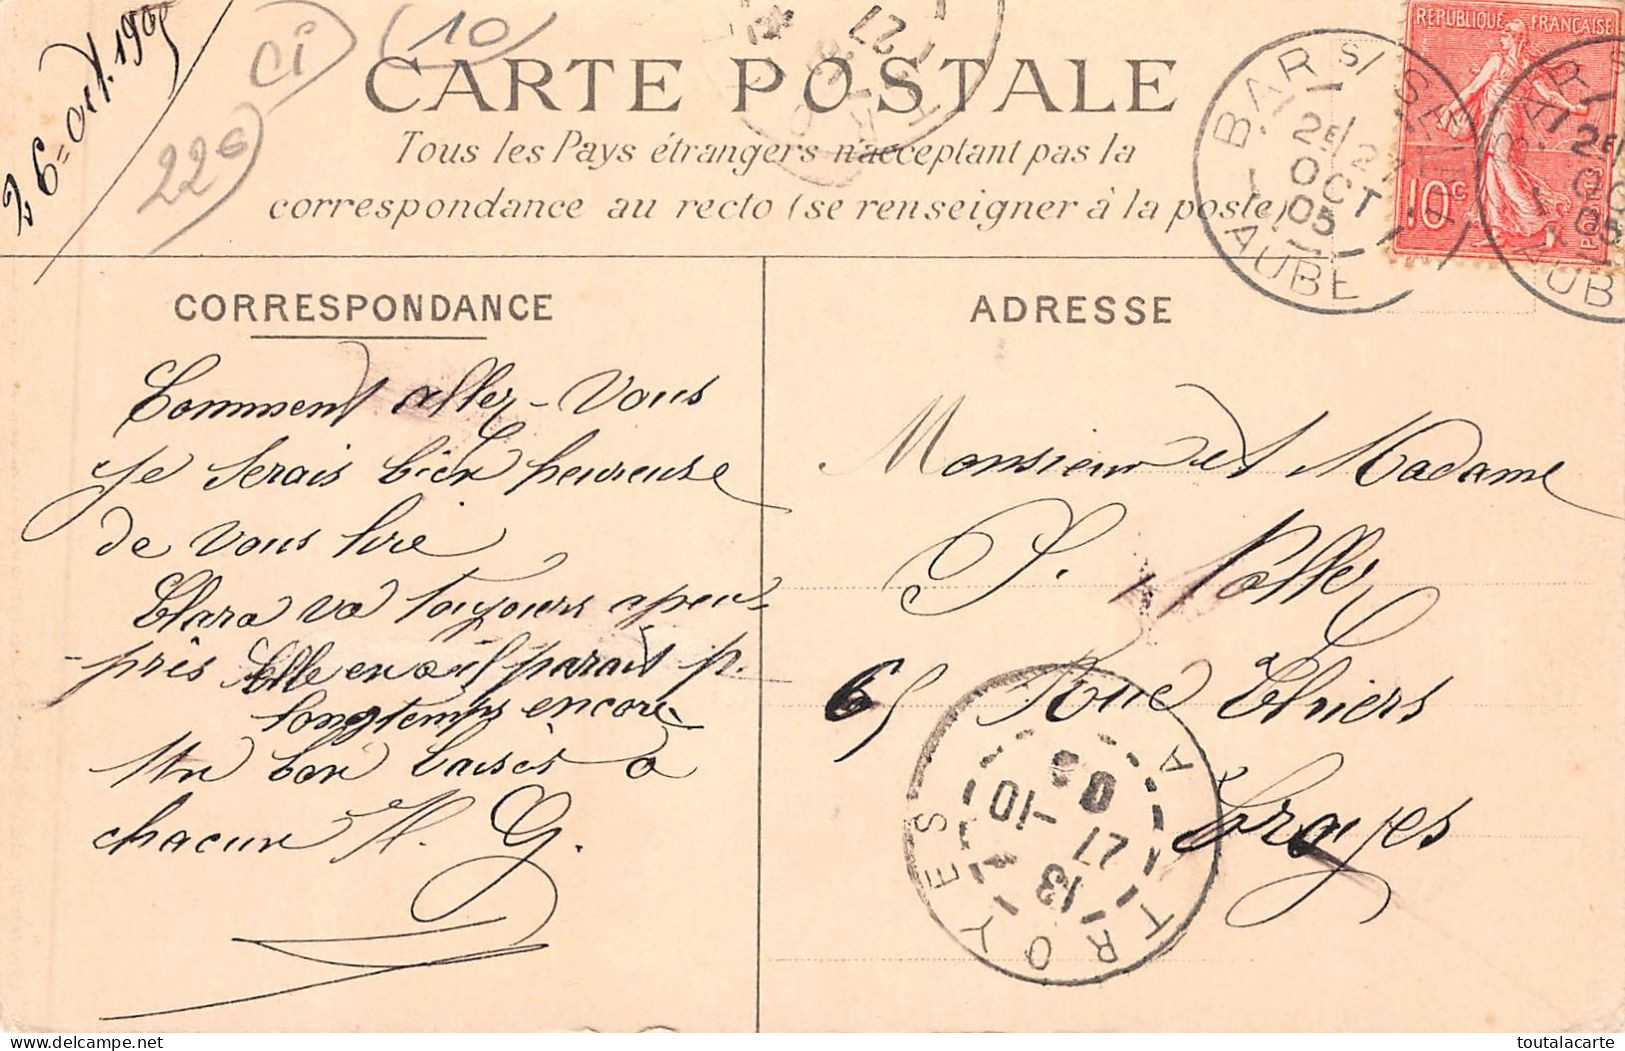 26 = oct. 1905
Ci
(10)
22€
CARTE POSTALE
Tous les Pays étrangers n'acceptent pas la
correspondance au recto (se renseigner à la poste)
RÉPUBLIQUE FRANÇAISE
10c
POSTES
BAR S/ SEINE
2E/
27
OCT
05
AUBE
CORRESPONDANCE
ADRESSE
Comment allez-vous
Je serais bien heureuse
de vous lire
Clara va toujours apeu-
près Elle en a il parait p.
longtemps encore
Un bon baisés à
chacun M. G.
Monsieur et Madame
P. Noller
65 Rue Thiers
Troyes
TROYES A
13
27 -10
05
toutalacarte